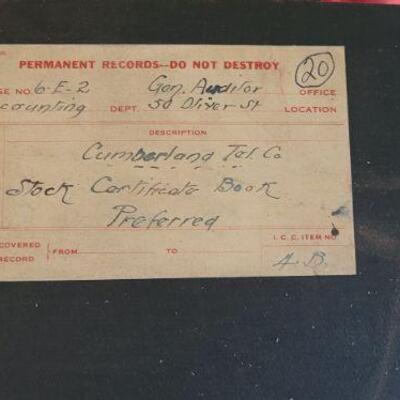 PERMANENT RECORDS—DO NOT DESTROY 20
GE NO. 6-E-2 Gen. Auditor OFFICE
counting DEPT. 50 Oliver St LOCATION
DESCRIPTION
Cumberland Tel. Co
Stock Certificate Book
Preferred
COVERED I. C. C. ITEM NO.
RECORD FROM TO A. B.